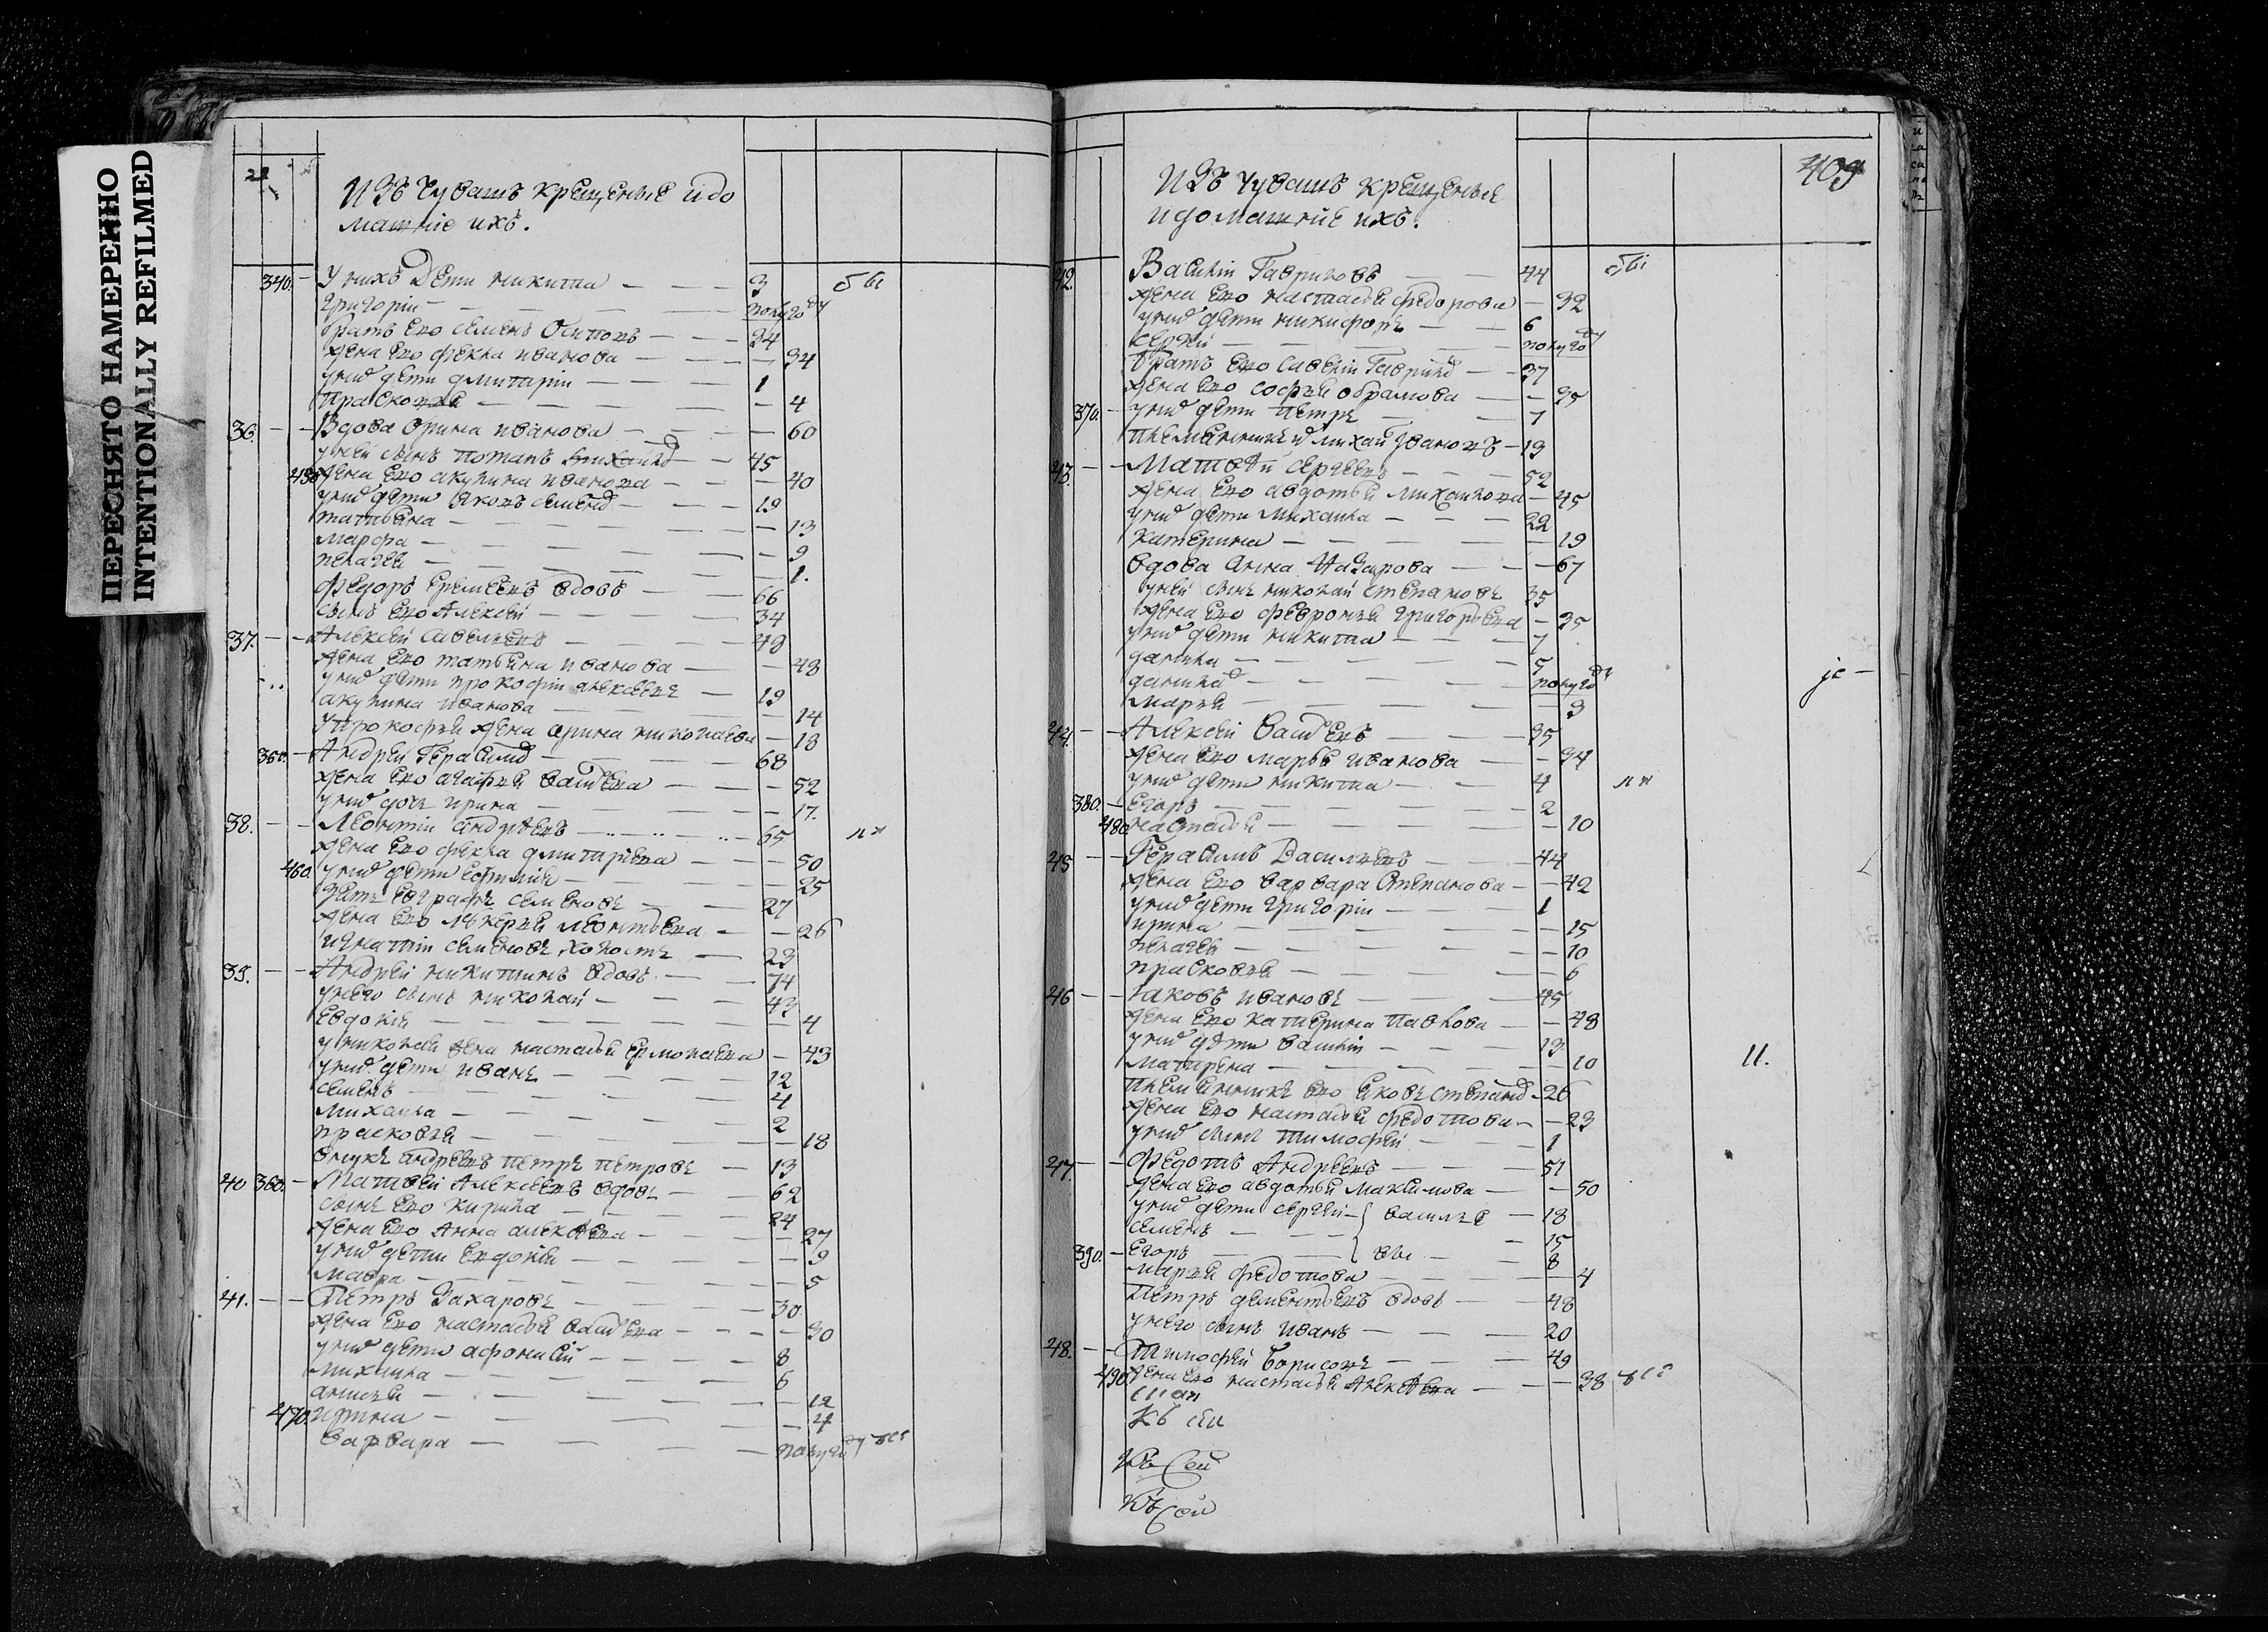 ПЕРЕСНЯТО НАМЕРЕННО
INTENTIONALLY REFILMED
Изъ Чувашъ крещеные и до
машніе ихъ.
340. У нихъ дети никита 3 обы
григорій полугоду
братъ ево семенъ Осиповъ 24
жена ево фекла иванова 34
у них дети дмитрій 1
Прасковья 4
36. Вдова Орина иванова 60
у ней сынъ потапъ 45
жена ево акулина иванова 40
у них дети яковъ 19
татьяна 13
марфа 9
пелагея 1.
Федоръ еремеевъ вдовъ 66
сынъ ево Алексей 34
37. Алексей савельевъ 49
жена ево татьяна иванова 48
у них дети прокофій алексеевъ 19
акулина иванова 14
у прокофья жена орина николаева 18
350. Андрей Герасимо 68
жена ево агафья васильева 52
у них дочь ирина 17.
38. Леонтій андреевъ 65
жена ево фекла дмитріева 50
460. у них дети ефимия 25
зять евграфъ семеновъ 27
жена ево лукерья леонтьева 26
игнатій семеновъ холостъ 23
39. Андрей никитинъ вдовъ 74
у него сынъ николай 43
евдокія 4
у николая жена настасья ермолаева 43
у них дети иванъ 12
семенъ 4
михаила 2
прасковья 18
внукъ андреевъ петръ петровъ 13
40 360. Матвей Алексеевъ вдовъ 62
сынъ ево Кирила 24
жена ево Анна алексеева 27
у них дети евдокия 9
мавра 5
41. Петръ Захаровъ 30
жена ево настасья васильева 30
у них дети афонасій 8
михаила 6
анисья 12
470. ирина 4
варвара полугоду
409
Изъ Чувашъ крещеные
и домашніе ихъ.
42. Василій Гавриловъ 44 обы
жена ево настасья федорова 32
у них дети никифоръ 6
сергей полугоду
братъ ево савелій Гаврило 37
жена ево софья абрамова 25
370. у них дети петръ 7
племянникъ их михайло ивановъ 19
43. Матвей сергеевъ 52
жена ево авдотья михайлова 45
у них дети михаила 22
катерина 19
вдова анна Назарова 67
у ней сынъ николай степановъ 35
жена ево февронья григорьева 35
у них дети никита 7
данила 5
данила полугоду
марья 3
44. Алексей Васильевъ 35
жена ево марья иванова 34
у них дети никита 4
380. егоръ 2
480 настасья 10
45 Герасимъ Васильевъ 44
жена ево варвара Степанова 42
у них дети григорій 1
ирина 15
пелагея 10
прасковья 6
46 Яковъ ивановъ 45
жена ево катерина павлова 48
у них дети василій 13
матрена 10
11.
племянникъ ево яковъ степано 26
жена ево настасья федотова 23
у них сынъ тимофей 1
47. Федотъ Андреевъ 51
жена ево авдотья максимова 50
у них дети сергей 18
семенъ 15
390. егоръ 8
марья федотова 4
Петръ дементьевъ вдовъ 48
у него сынъ иванъ 20
48. Тимофей борисовъ 49
490 жена ево настасья алексеева 38